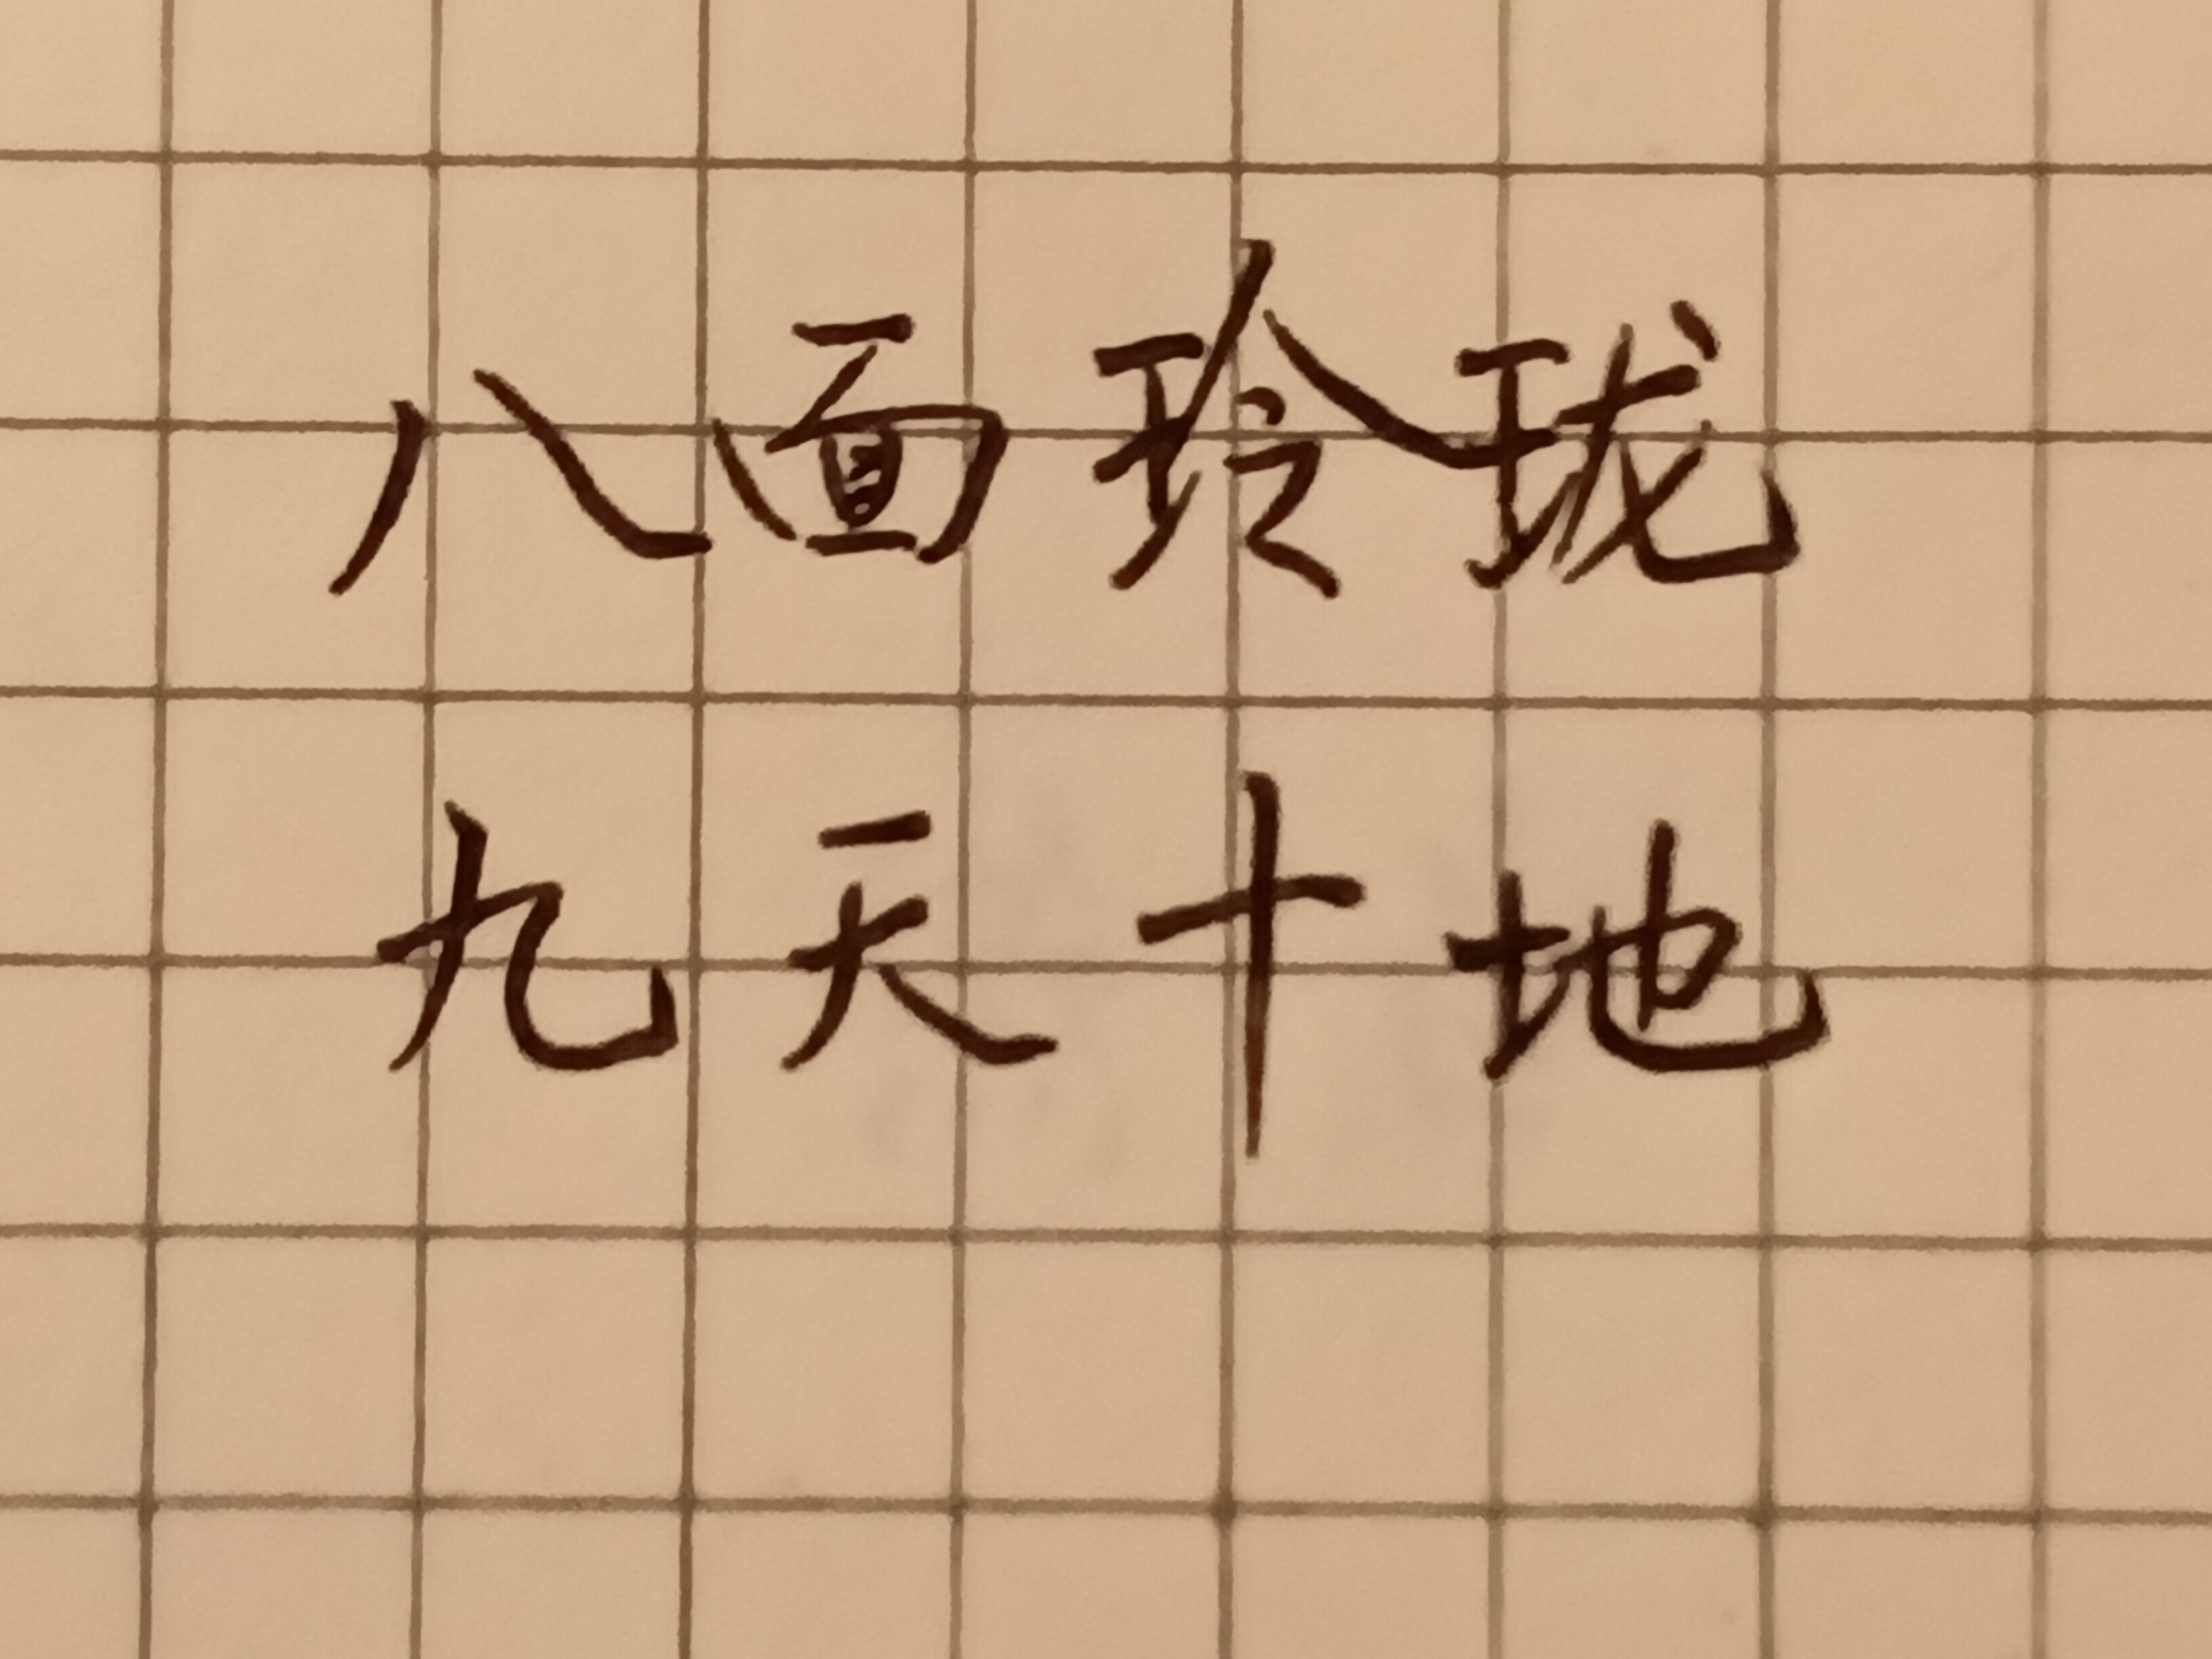 八面玲珑
九天十地